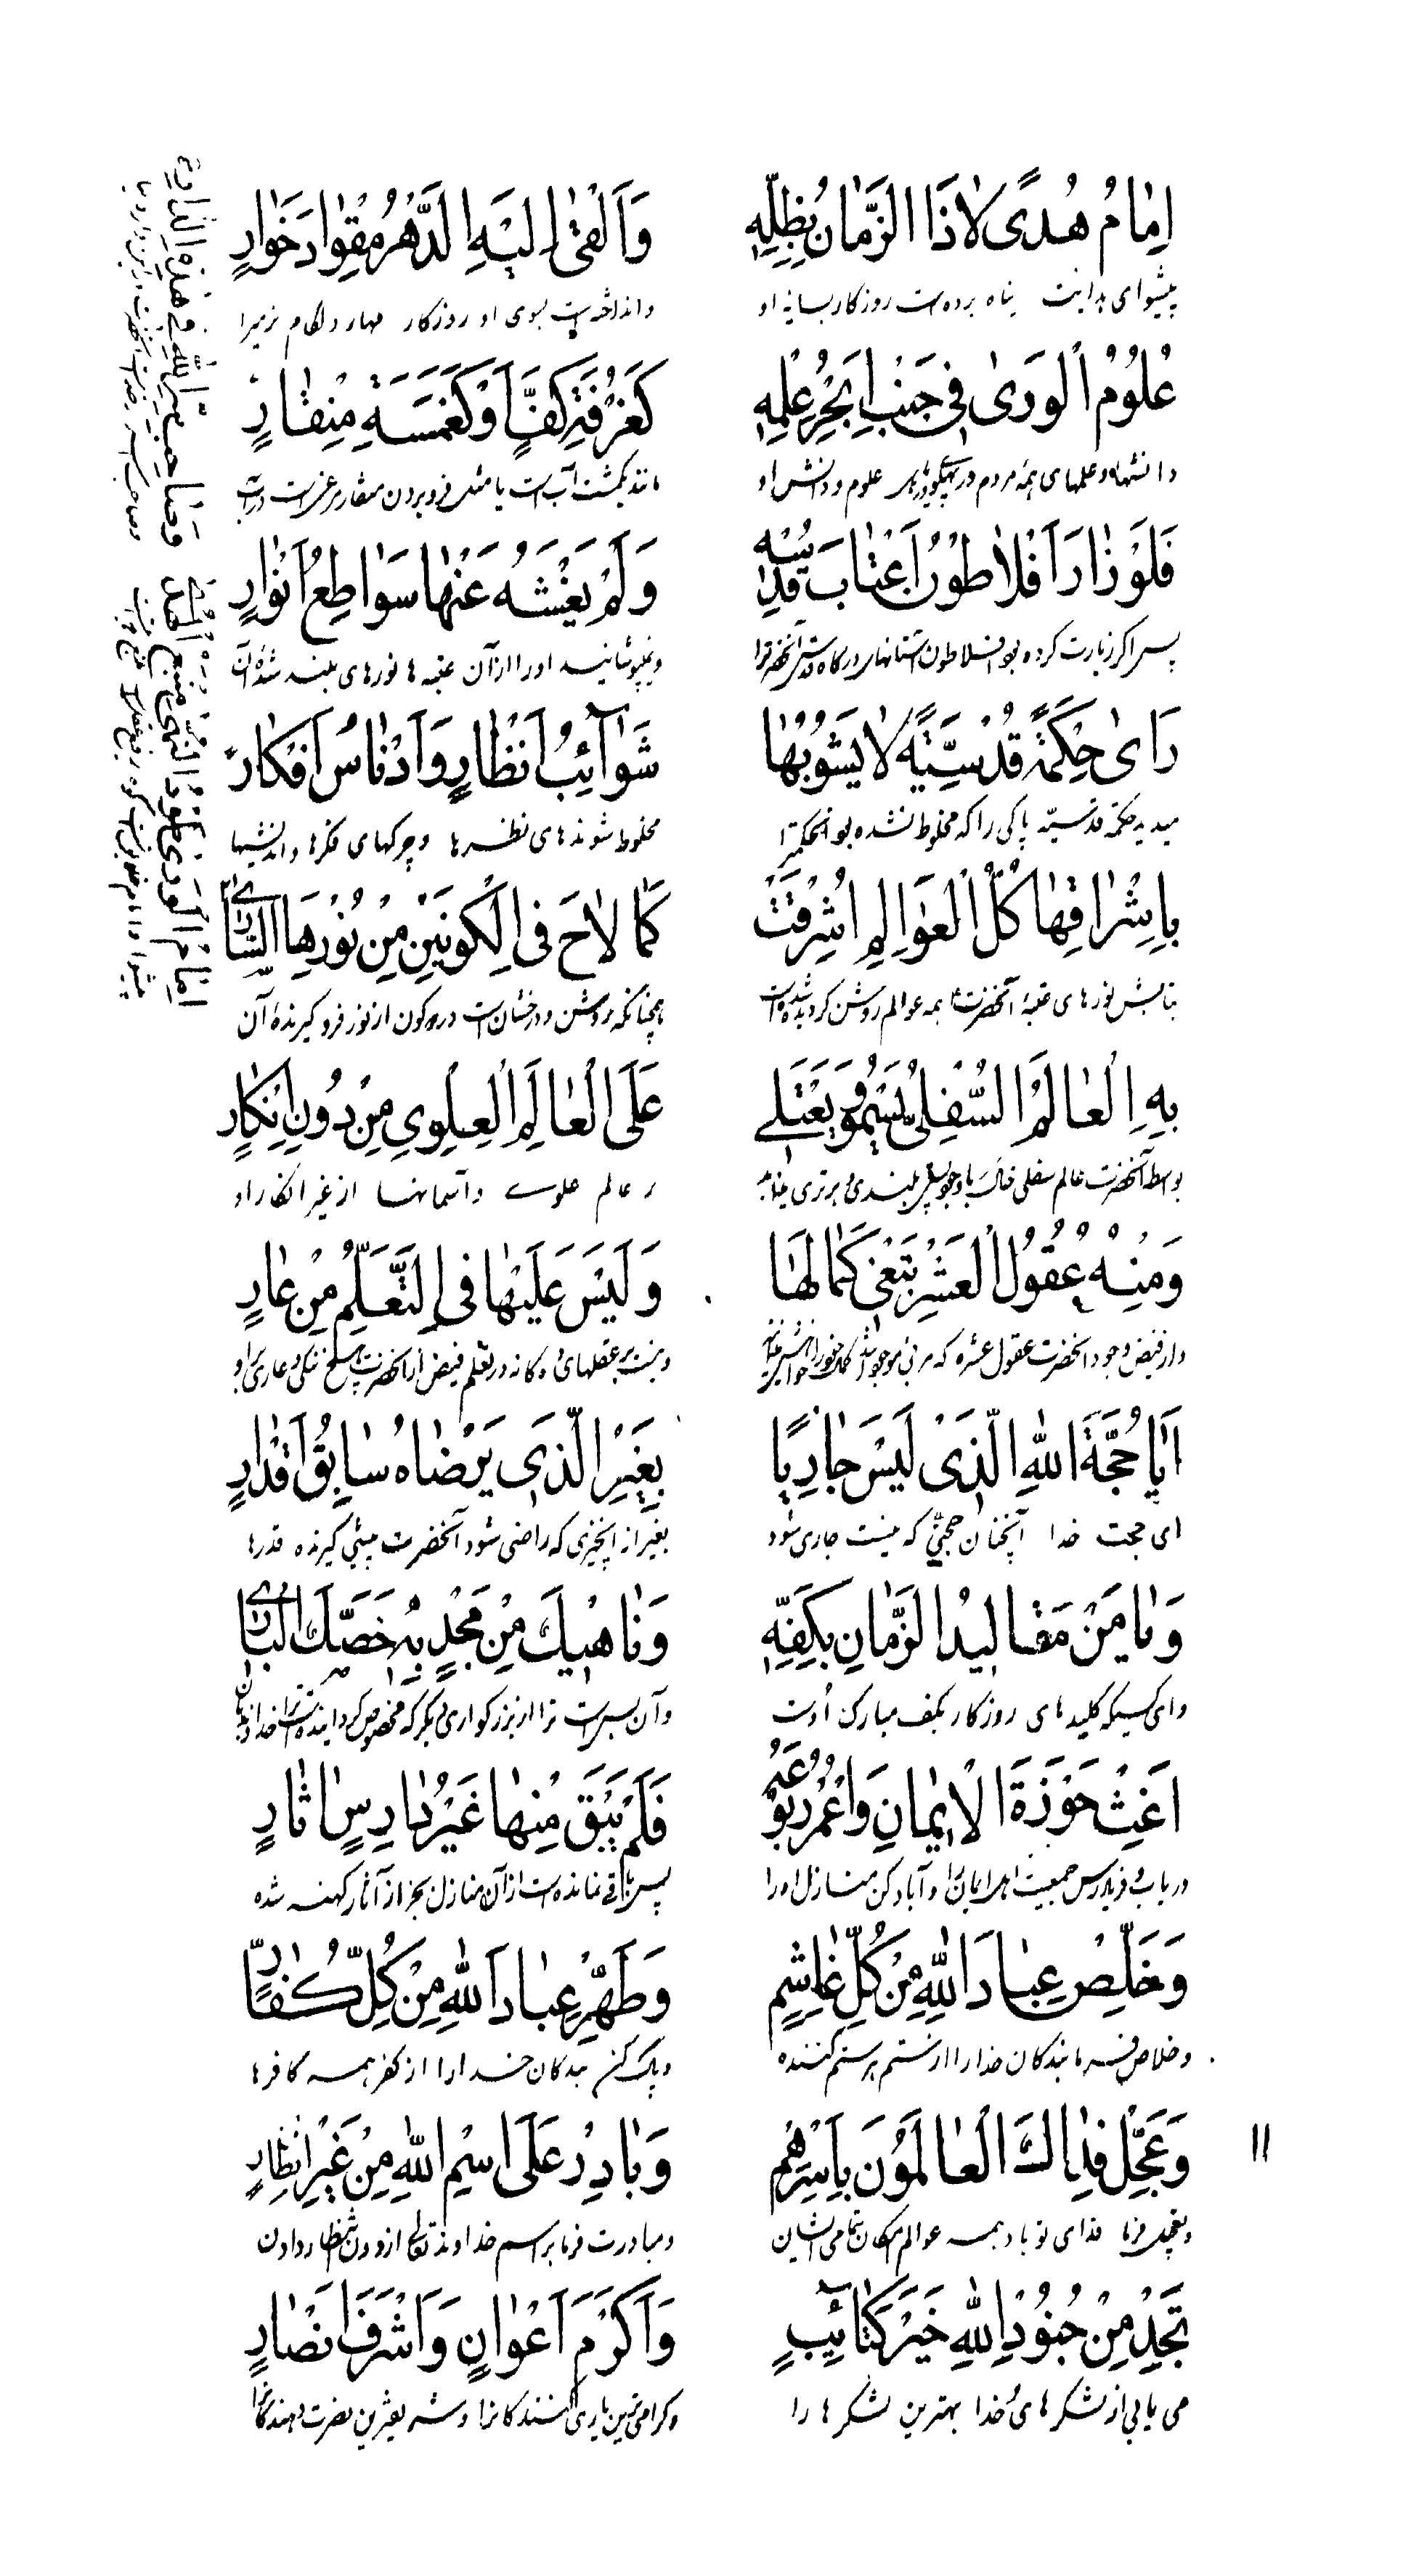 اِمٰامُ هُدًی لاٰذَا الزَّمٰانُ بِظِلِّهِ
وَاَلْقیٰ اِلَیْهِ الدَّهْرُ مِقْوٰادَ خَوّٰارٍ
پیشوای هدایت پناه برده است روزکار بسایهٔ او
وانداخته است بسوی او روزکار مهار ولکام نرمیرا
عُلُومُ الْوَریٰ فی جَنْبِ اَبْحُرِ عِلْمِهِ
کَغَرْفَةِ کَفٍّ اَوْ کَغَمْسَةِ مِنْقٰارٍ
دانشها وعلمهای همه مردم در علوم ودانش او
مانند یکمشت آب است یا مثل فروبردن منقار مرغیست در آب
فَلَوْ زٰارَ اَفْلاٰطُونُ اَعْتٰابَ قُدْسِهِ
وَلَمْ یَغْشَهُ عَنْهٰا سَوٰاطِعُ اَنْوٰارٍ
پس اکر زیارت کرده بود افلاطون آستانهای درکاه قدس آنحضرترا
ونمیپوشانید اورا از آن عتبه ها نورهای بلند شدهٔ آن
رَایٰ حِکْمَةً قُدْسِیَّةً لاٰ یَشُوبُهٰا
شَوٰآئِبُ اَنْظٰارٍ وَاَدْنٰاسُ اَفْکٰارٍ
میدید حکمة قدسیّه پاکی را که مخلوط نشده بود آنحکمترا
مخلوط شوندهای نظرها وچرکهای فکرها واندیشها
بِاِشْرٰاقِهٰا کُلُّ الْعَوٰالِمِ اُشْرِقَتْ
کَمٰا لاٰحَ فی الْکَوْنَیْنِ مِنْ نُورِهَا السّٰاری
بتابش نورهای عتبهٔ آنحضرت همه عوالم روشن کردیده است
همچنانکه روشن ودرخشان است در دوکون از نور فروکیرندهٔ آن
بِهِ الْعٰالَمُ السُّفْلِیُّ یَسْمُو وَیَعْتَلی
عَلَی الْعٰالَمِ الْعِلْوِیِ مِنْ دُونِ اِنْکٰارٍ
بواسطه آنحضرت عالم سفلی خاک بلندی وبرتری مینماید
بر عالم علوی وآسمانها از غیر انکار او
وَمِنْهُ عُقُولُ الْعَشْرِ تَبْغی کَمٰالَهٰا
وَلَیْسَ عَلَیْهٰا فی التَّعَلُّمِ مِنْ عٰارٍ
واز فیض وجود انحضرت عقول عشره که مربّی موجوداتند کمال خودرا
ونیست بر عقلهای ده کانه در تعلم فیض از آنحضرت هیچ ننک وعاری
اَیٰا حُجَّةَ اللهِ الَّذی لَیْسَ جٰارِیًا
بِغَیْرِ الَّذی یَرْضٰاهُ سٰابِقُ اَقْدٰارٍ
ای حجت خدا آنچنان حجّتی که نیست جاری شود
بغیر از آنچیزی که راضی شود آنحضرت پیشی کیرنده قدرها
وَیٰا مَنْ مَقٰالیدُ الزَّمٰانِ بِکَفِّهِ
وَنٰاهیكَ مِنْ مَجْدٍ بِهِ خَصَّكَ الْبٰاری
وای کسیکه کلیدهای روزکار بکف مبارک اوست
وآن بس است ترا از بزرکواری که مخصوص کردانیده است ترا خداوند
اَغِثْ حَوْزَةَ الْاِیمٰانِ وَاعْمُرْ رُبُوعَهُ
فَلَمْ یَبْقَ مِنْهٰا غَیْرُ دٰارِسِ اٰثٰارٍ
دریاب وفریادرس جمعیت اهل ایمانرا وآباد کن منازل اورا
پس باقی نمانده است از آن منازل بجز از آثار کهنه شده
وَخَلِّصْ عِبٰادَ اللهِ مِنْ کُلِّ غٰاشِمٍ
وَطَهِّرْ عِبٰادَ اللهِ مِنْ کُلِّ کُفّٰارٍ
وخلاص فرما بندکان خدارا از ستم هر ستم کننده
وپاک کن بندکان خدارا از کفر همه کافرها
۱۱
وَعَجِّلْ فِدٰاكَ الْعٰالَمُونَ بِاَسْرِهِمْ
وَبٰادِرْ عَلَی اسْمِ اللهِ مِنْ غَیْرِ اِنْظٰارٍ
وتعجیل فرما فدای تو باد همه عوالم امکان تمامی ایشان
ومبادرت فرما بر اسم خداوند تعالی از دون انتظار دادن
تَجِدْ مِنْ جُنُودِ اللهِ خَیْرَ کَتٰآئِبٍ
وَاَکْرَمَ اَعْوٰانٍ وَاَشْرَفَ اَنْصٰارٍ
می یابی از لشکرهای خدا بهترین لشکرها را
وکرامی ترین یاری کنندکانرا وشریفترین نصرت دهندکانرا
اِمٰامُ الْوَریٰ طَوْدُ النُّهیٰ مَنْبَعُ الْهُدیٰ وَصٰاحِبُ سِرِّ اللهِ فی هٰذِهِ الدّٰارِ